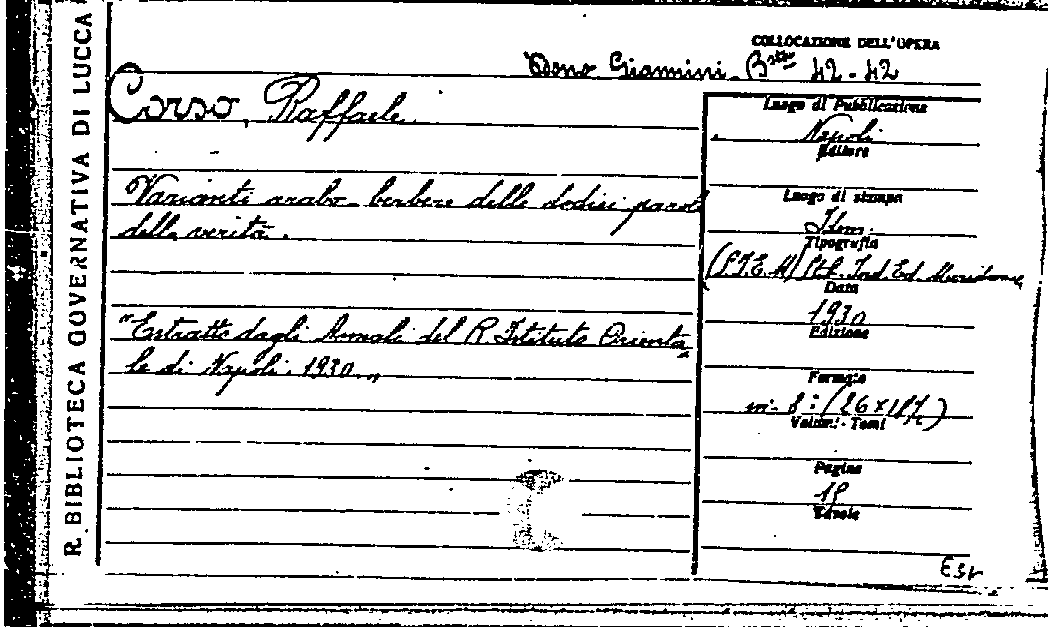 R. BIBLIOTECA GOVERNATIVA DI LUCCA
COLLOCAZIONE DELL'OPERA
Dono Giannini - Bsta 42 - 42
Corso, Raffaele.
Varianti arabo-berbere delle dodici parole
della verità.
"Estratto dagli Annali del R. Istituto Orienta
le di Napoli. 1930."
Luogo di Pubblicazione
Napoli
Editore
Luogo di stampa
Idem.
Tipografia
(S.I.E.M.) Stab. Ind. Ed. Meridionale
Data
1930
Edizione
Formato
in-8:
Volumi - Tomi
Pagine
Tavole